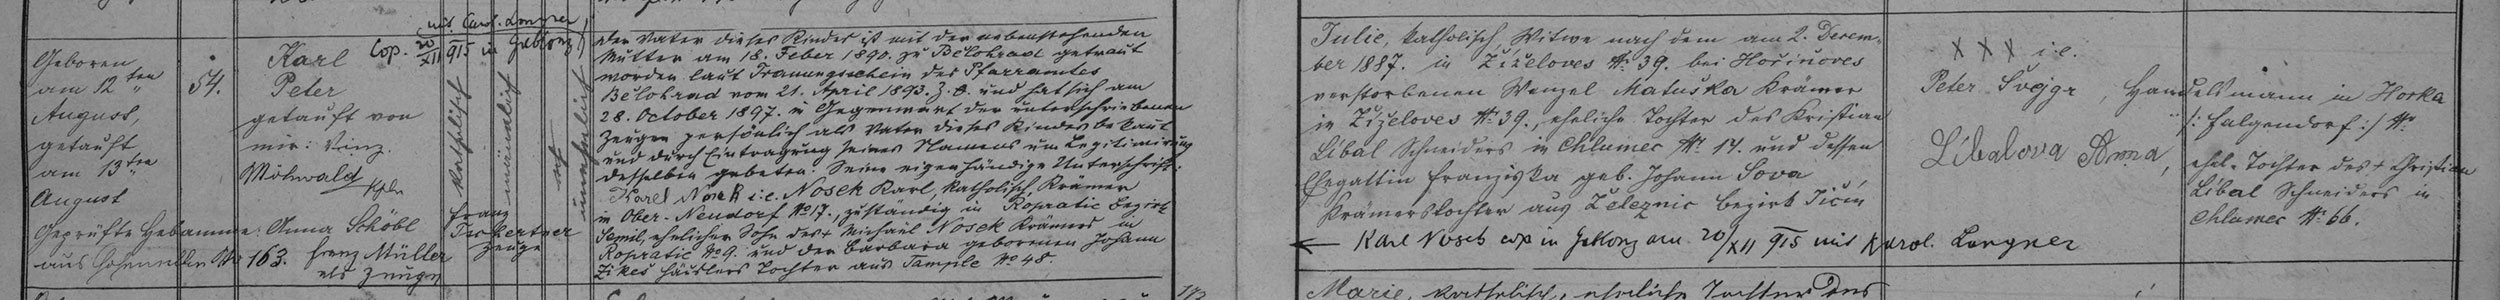 mit Carol. Langner,
Cop. 20/XII 915 in Gablonz
Geboren
am 12ten
August,
getauft
am 13ten
August
54.
Karl
Peter
getauft von
mir: Vinz.
Wohwald
Kpln
katholisch
männlich
unehelich
Geprüfte Hebamme: Anna Schöbl
aus No 163. Franz Müller
als Zeugen
Franz
Zeuge
Der Vater dieses Kindes ist mit der nebenstehenden
Mutter am 18. Feber 1890. zu Bělohrad getraut
worden laut Trauungsschein des Pfarramtes
Bělohrad vom 21. April 1893. Z. 8. und hat sich am
28. October 1897. in Gegenwart der unterschriebenen
Zeugen persönlich als Vater dieses Kindes bekannt
und durch Eintragung seines Namens um Legitimirung
desselben gebeten. Seine eigenhändige Unterschrift:
Karel Nosek i.e. Nosek Karl, katholisch, Krämer
in Ober-Neudorf No 17., zuständig in Ropratic Bezirk
Semil, ehelicher Sohn des + Michael Nosek Krämers in
Ropratic No 9. und der Barbara geborenen Johann
Zikes Häuslers Tochter aus Tample No 48.
Julie, katholisch, Witwe nach dem am 2. Decem-
ber 1887. in Žiželoves No 39. bei Hořinoves
verstorbenen Wenzel Matuška Krämer
in Žiželoves No 39., eheliche Tochter des Kristian
Líbal Schneiders in Chlumec No 14. und dessen
Ehegattin Franziska geb. Johann Sova
Krämerstochter aus Železnic Bezirk Jičín
← Karl Nosek cop in Gablonz am 20/XII 915 mit Karol. Langner
X X X i.e.
Peter Švejgr, Handelsmann in Horka
/: Falgendorf :/ No
Líbalova Anna, ehel. Tochter des + Christian
Líbal Schneiders in
Chlumec No 66.
Marie, katholisch, eheliche Tochter des